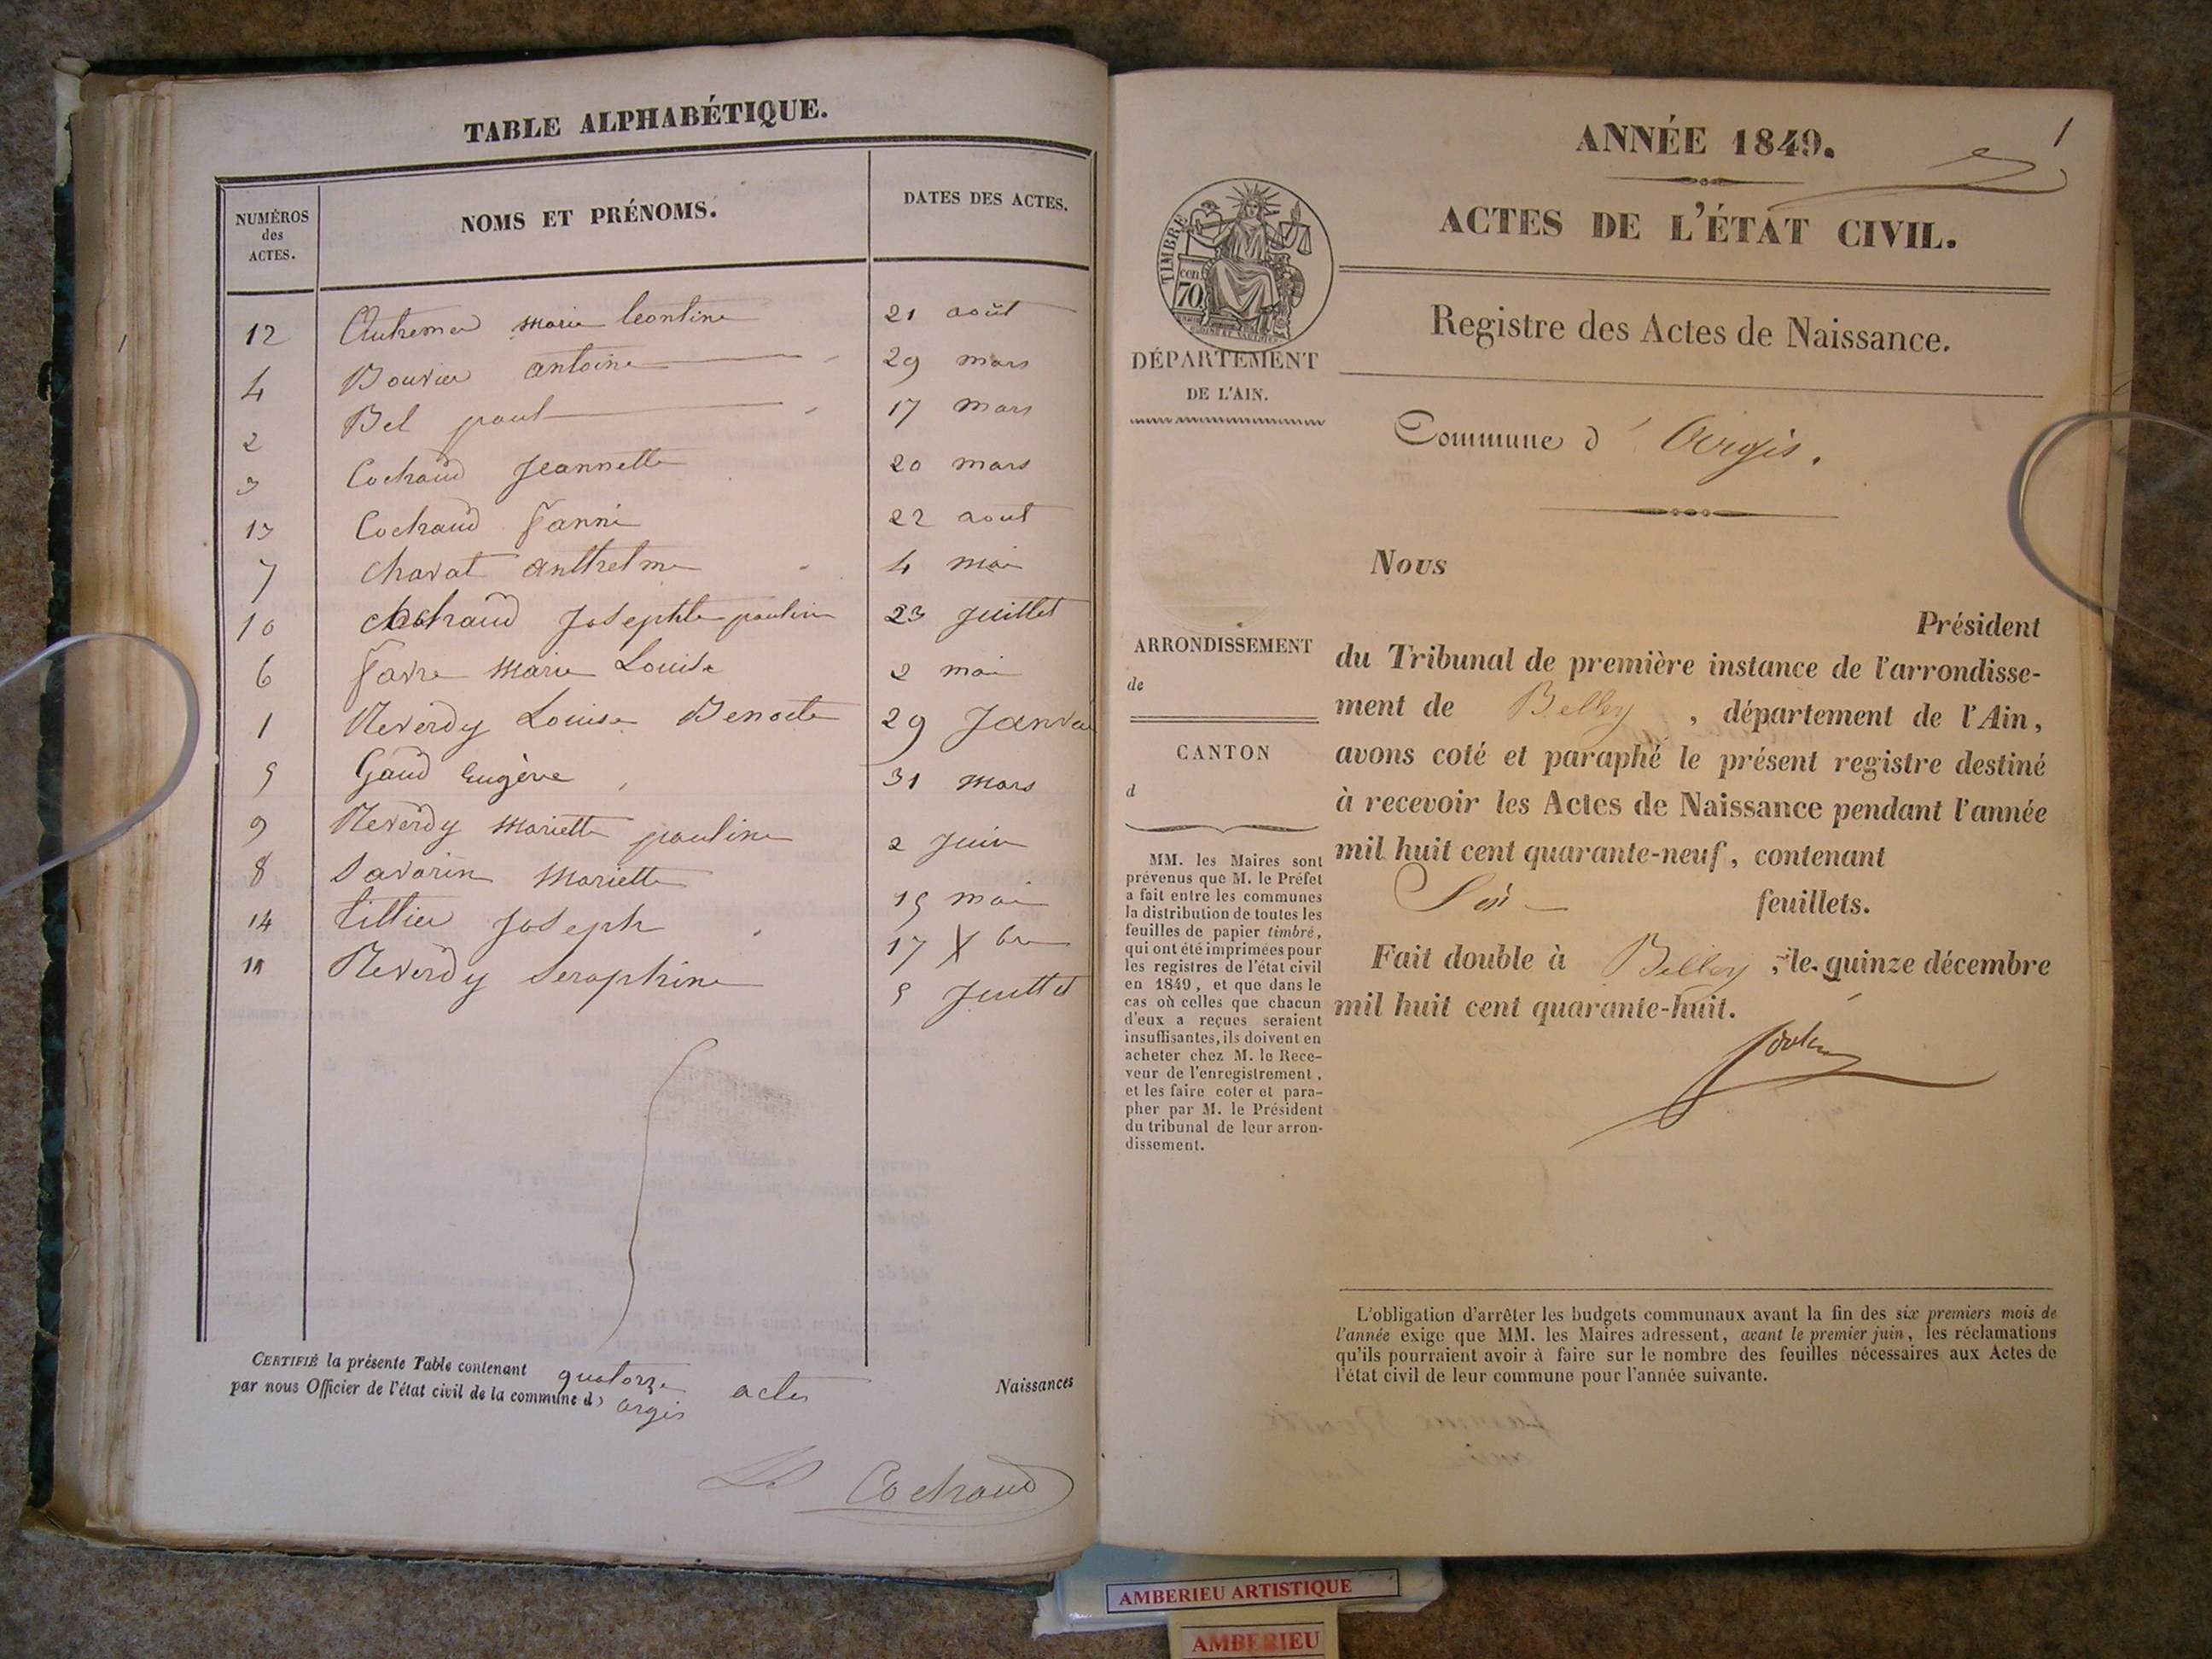 TABLE ALPHABÉTIQUE.
NUMÉROS
des
ACTES.
NOMS ET PRÉNOMS.
DATES DES ACTES.
12 marie Leontine 21 août
4 Bouvier antoine 29 mars
2 Bel paul 17 mars
3 Cochaud Jeannette 20 mars
13 Cochaud fanni 22 aout
7 Charat anthelme 4 mai
10 Josephte pauline 23 Juillet
6 favre Marie Louise 2 mai
1 Reverdy Louise Benoite 29 Janvi
5 Gaud Eugène 31 mars
9 Reverdy Mariette pauline 2 Juin
8 Savarin Mariette 15 mai
14 tillier Joseph 17 Xbre
11 Reverdy Seraphine 5 Juillet
CERTIFIÉ la présente Table contenant quatorze actes Naissances
par nous Officier de l'état civil de la commune d' argis
Cochaud
1
ANNÉE 1849.
ACTES DE L'ÉTAT CIVIL.
TIMBRE
cen.
70
Registre des Actes de Naissance.
DÉPARTEMENT
DE L'AIN.
Commune d' Argis.
Nous
Président
ARRONDISSEMENT
de
CANTON
d
du Tribunal de première instance de l'arrondisse-
ment de Belley, département de l'Ain,
avons coté et paraphé le présent registre destiné
à recevoir les Actes de Naissance pendant l'année
mil huit cent quarante-neuf, contenant
Six feuillets.
Fait double à Belley, le quinze décembre
mil huit cent quarante-huit.
MM. les Maires sont
prévenus que M. le Préfet
a fait entre les communes
la distribution de toutes les
feuilles de papier timbré,
qui ont été imprimées pour
les registres de l'état civil
en 1849, et que dans le
cas où celles que chacun
d'eux a reçues seraient
insuffisantes, ils doivent en
acheter chez M. le Rece-
veur de l'enregistrement,
et les faire coter et para-
pher par M. le Président
du tribunal de leur arron-
dissement.
L'obligation d'arrêter les budgets communaux avant la fin des six premiers mois de
l'année exige que MM. les Maires adressent, avant le premier juin, les réclamations
qu'ils pourraient avoir à faire sur le nombre des feuilles nécessaires aux Actes de
l'état civil de leur commune pour l'année suivante.
AMBERIEU ARTISTIQUE
AMBERIEU